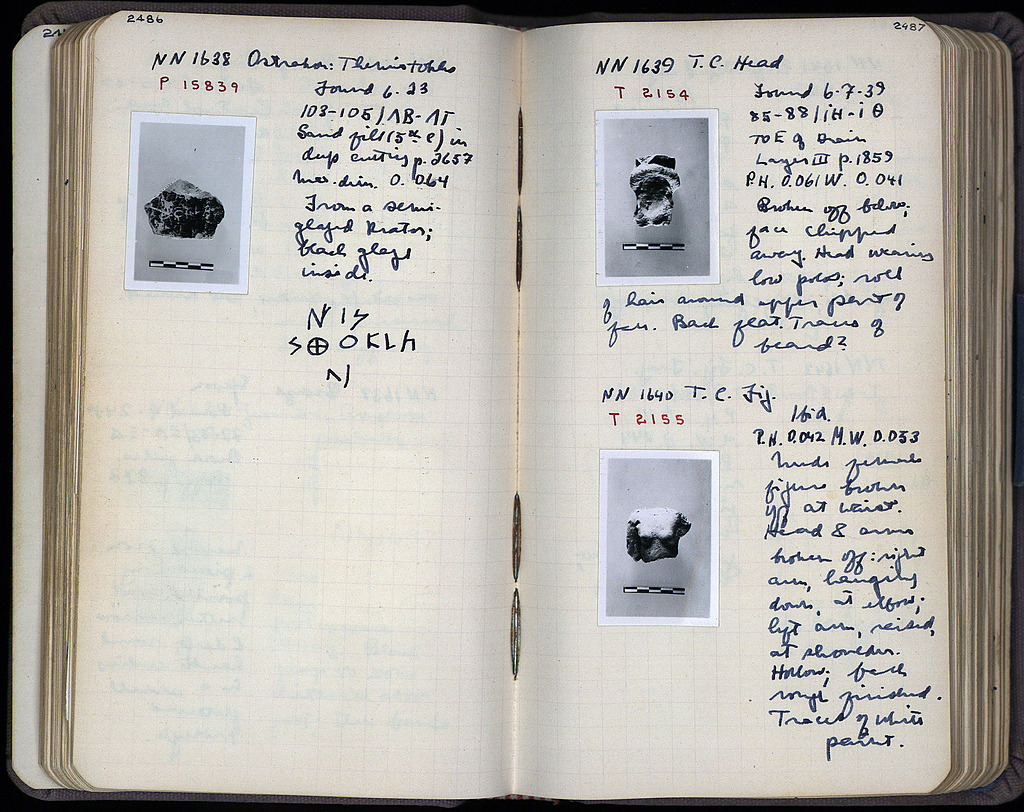 2486
NN 1638 Ostrakon: Themistokles
P 15839
Found 6.23
103-105/ΛΒ-ΛΓ
Sand fill (5th c) in
deep cutting p. 2657
Max. dim. 0.064
From a semi-
glazed krater;
black glaze
inside.
2487
NN 1639 T.C. Head
T 2154
Found 6-7-39
85-88/ΙΗ-ΙΘ
To E of Drain
Layer III p. 1859
P.H. 0.061 W. 0.041
Broken off below;
face chipped
away. Head wearing
low polos; roll
of hair around upper part of
face. Back flat. Traces of
beard?
NN 1640 T.C. Fig.
T 2155
Ibid.
P.H. 0.042 M.W. 0.053
Nude female
figure broken
off at waist.
Head & arms
broken off: right
arm, hanging
down, at elbow;
left arm, raised,
at shoulder.
Hollow; back
rough finished.
Traces of white
paint.